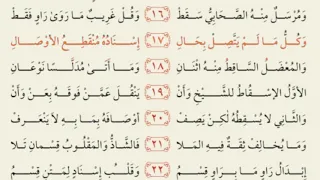 وَمُرْسَلٌ مِنْهُ الصَّحَابِيُّ سَقَطْ ﴿١٦﴾ وَقُلْ غَرِيبٌ مَا رَوَى رَاوٍ فَقَطْ
وَكُلُّ مَا لَمْ يَتَّصِلْ بِحَالِ ﴿١٧﴾ إِسْنَادُهُ مُنْقَطِعُ الأَوْصَالِ
وَالمُعْضَلُ السَّاقِطُ مِنْهُ اثْنَانِ ﴿١٨﴾ وَمَا أَتَى مُدَلَّسًا نَوْعَانِ
الأَوَّلُ الإِسْقَاطُ لِلشَّيْخِ وَأَنْ ﴿١٩﴾ يَنْقُلَ عَمَّنْ فَوْقَهُ بِعَنْ وَأَنْ
وَالثَّانِي لَا يُسْقِطُهُ لَكِنْ يَصِفْ ﴿٢٠﴾ أَوْصَافَهُ بِمَا بِهِ لَا يَنْعَرِفْ
وَمَا يُخَالِفْ ثِقَةٌ فِيهِ المَلَا ﴿٢١﴾ فَالشَّاذُّ وَالمَقْلُوبُ قِسْمَانِ تَلَا
إِبْدَالُ رَاوٍ مَا بِرَاوٍ قِسْمُ ﴿٢٢﴾ وَقَلْبُ إِسْنَادٍ لِمَتْنٍ قِسْمُ